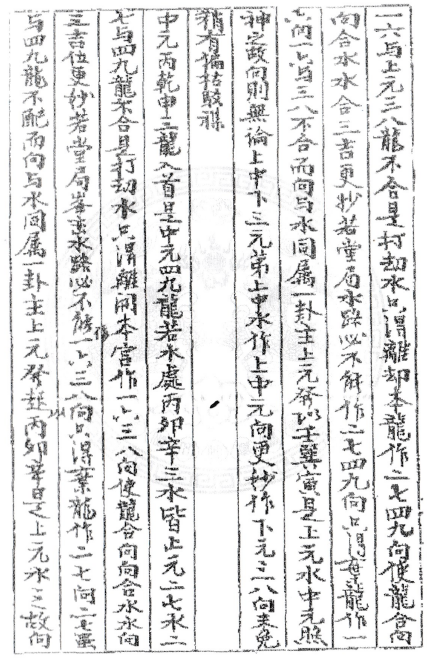 一六与上元三八龍不合是打劫水只得離却本龍作二七四九向使龍合向
向合水水合三吉更妙若堂局水路必不能作二七四九向只得棄龍作一
六向一六与三八不合而向与水同属一卦主上元發以壬巽寅是上元水中元照
神之故向則無論上中下三元第上中水作上中元向更妙作下元三八向未免
稍有偏枯駁雜
中元丙乾申三龍入首是中元四九龍若水處丙卯辛三水皆上元二七水二
七与四九龍不合是打劫水只得離開本宮作一六三八向使龍合向向合水水向
三吉位更妙若堂局峯巒水路必不能作一六三八向只得棄龍作二七向二七雖
与四九龍不配而向与水同属一卦主上元發越以丙卯辛是上元水之故向